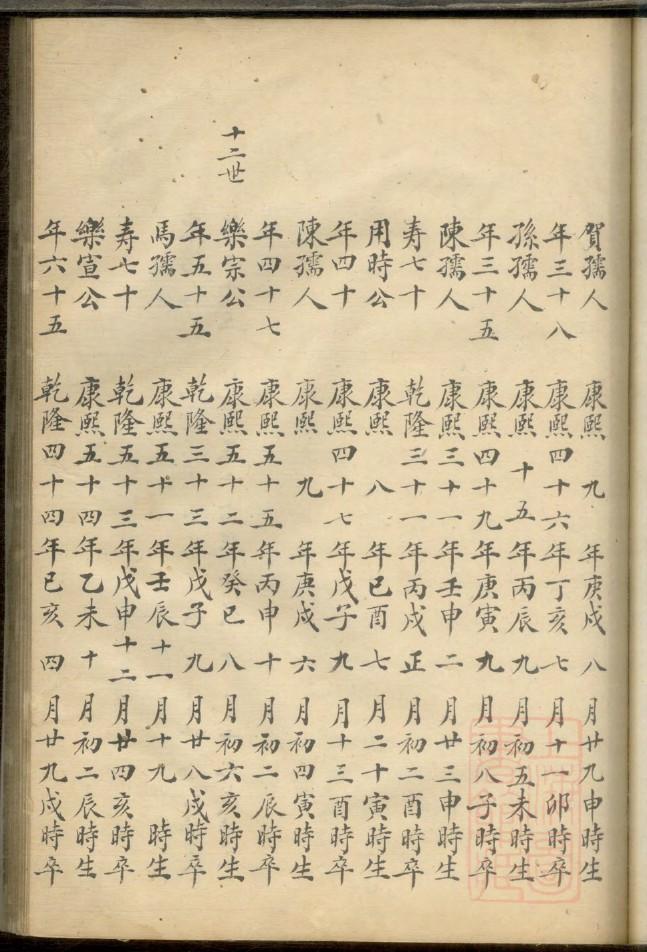 賀孺人 康熙九年庚戌八月廿九申時生
年三十八 康熙四十六年丁亥七月十一卯時卒
孫孺人 康熙十五年丙辰九月初五未時生
年三十五 康熙四十九年庚寅九月初八子時卒
陳孺人 康熙三十一年壬申二月廿三申時生
寿七十 乾隆三十一年丙戌正月初二酉時卒
用時公 康熙八年己酉七月二十寅時生
年四十 康熙四十七年戊子九月十三酉時卒
陳孺人 康熙九年庚戌六月初四寅時生
年四十七 康熙五十五年丙申十月初二辰時卒
十二世
樂宗公 康熙五十二年癸巳八月初六亥時生
年五十五 乾隆三十三年戊子九月廿八戌時卒
馬孺人 康熙五十一年壬辰十一月十九時生
寿七十 乾隆五十三年戊申十二月廿四亥時卒
樂宣公 康熙五十四年乙未十月初二辰時生
年六十五 乾隆四十四年己亥四月廿九戌時卒